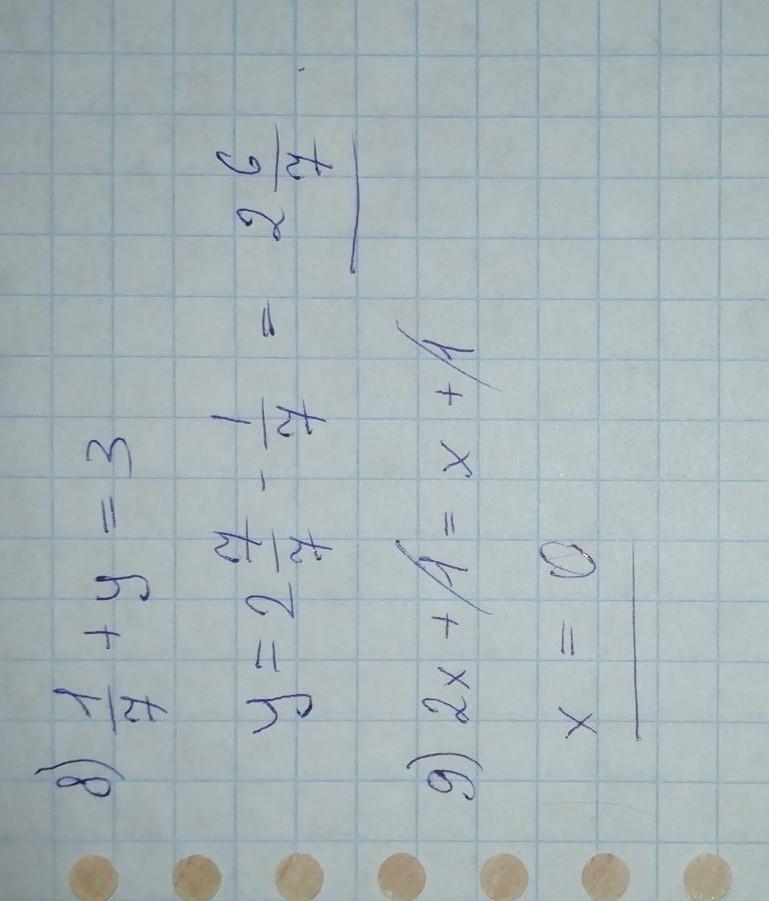 8) 1/7 + y = 3
y = 2 7/7 - 1/7 = 2 6/7
9) 2x + 1 = x + 1
x = 0